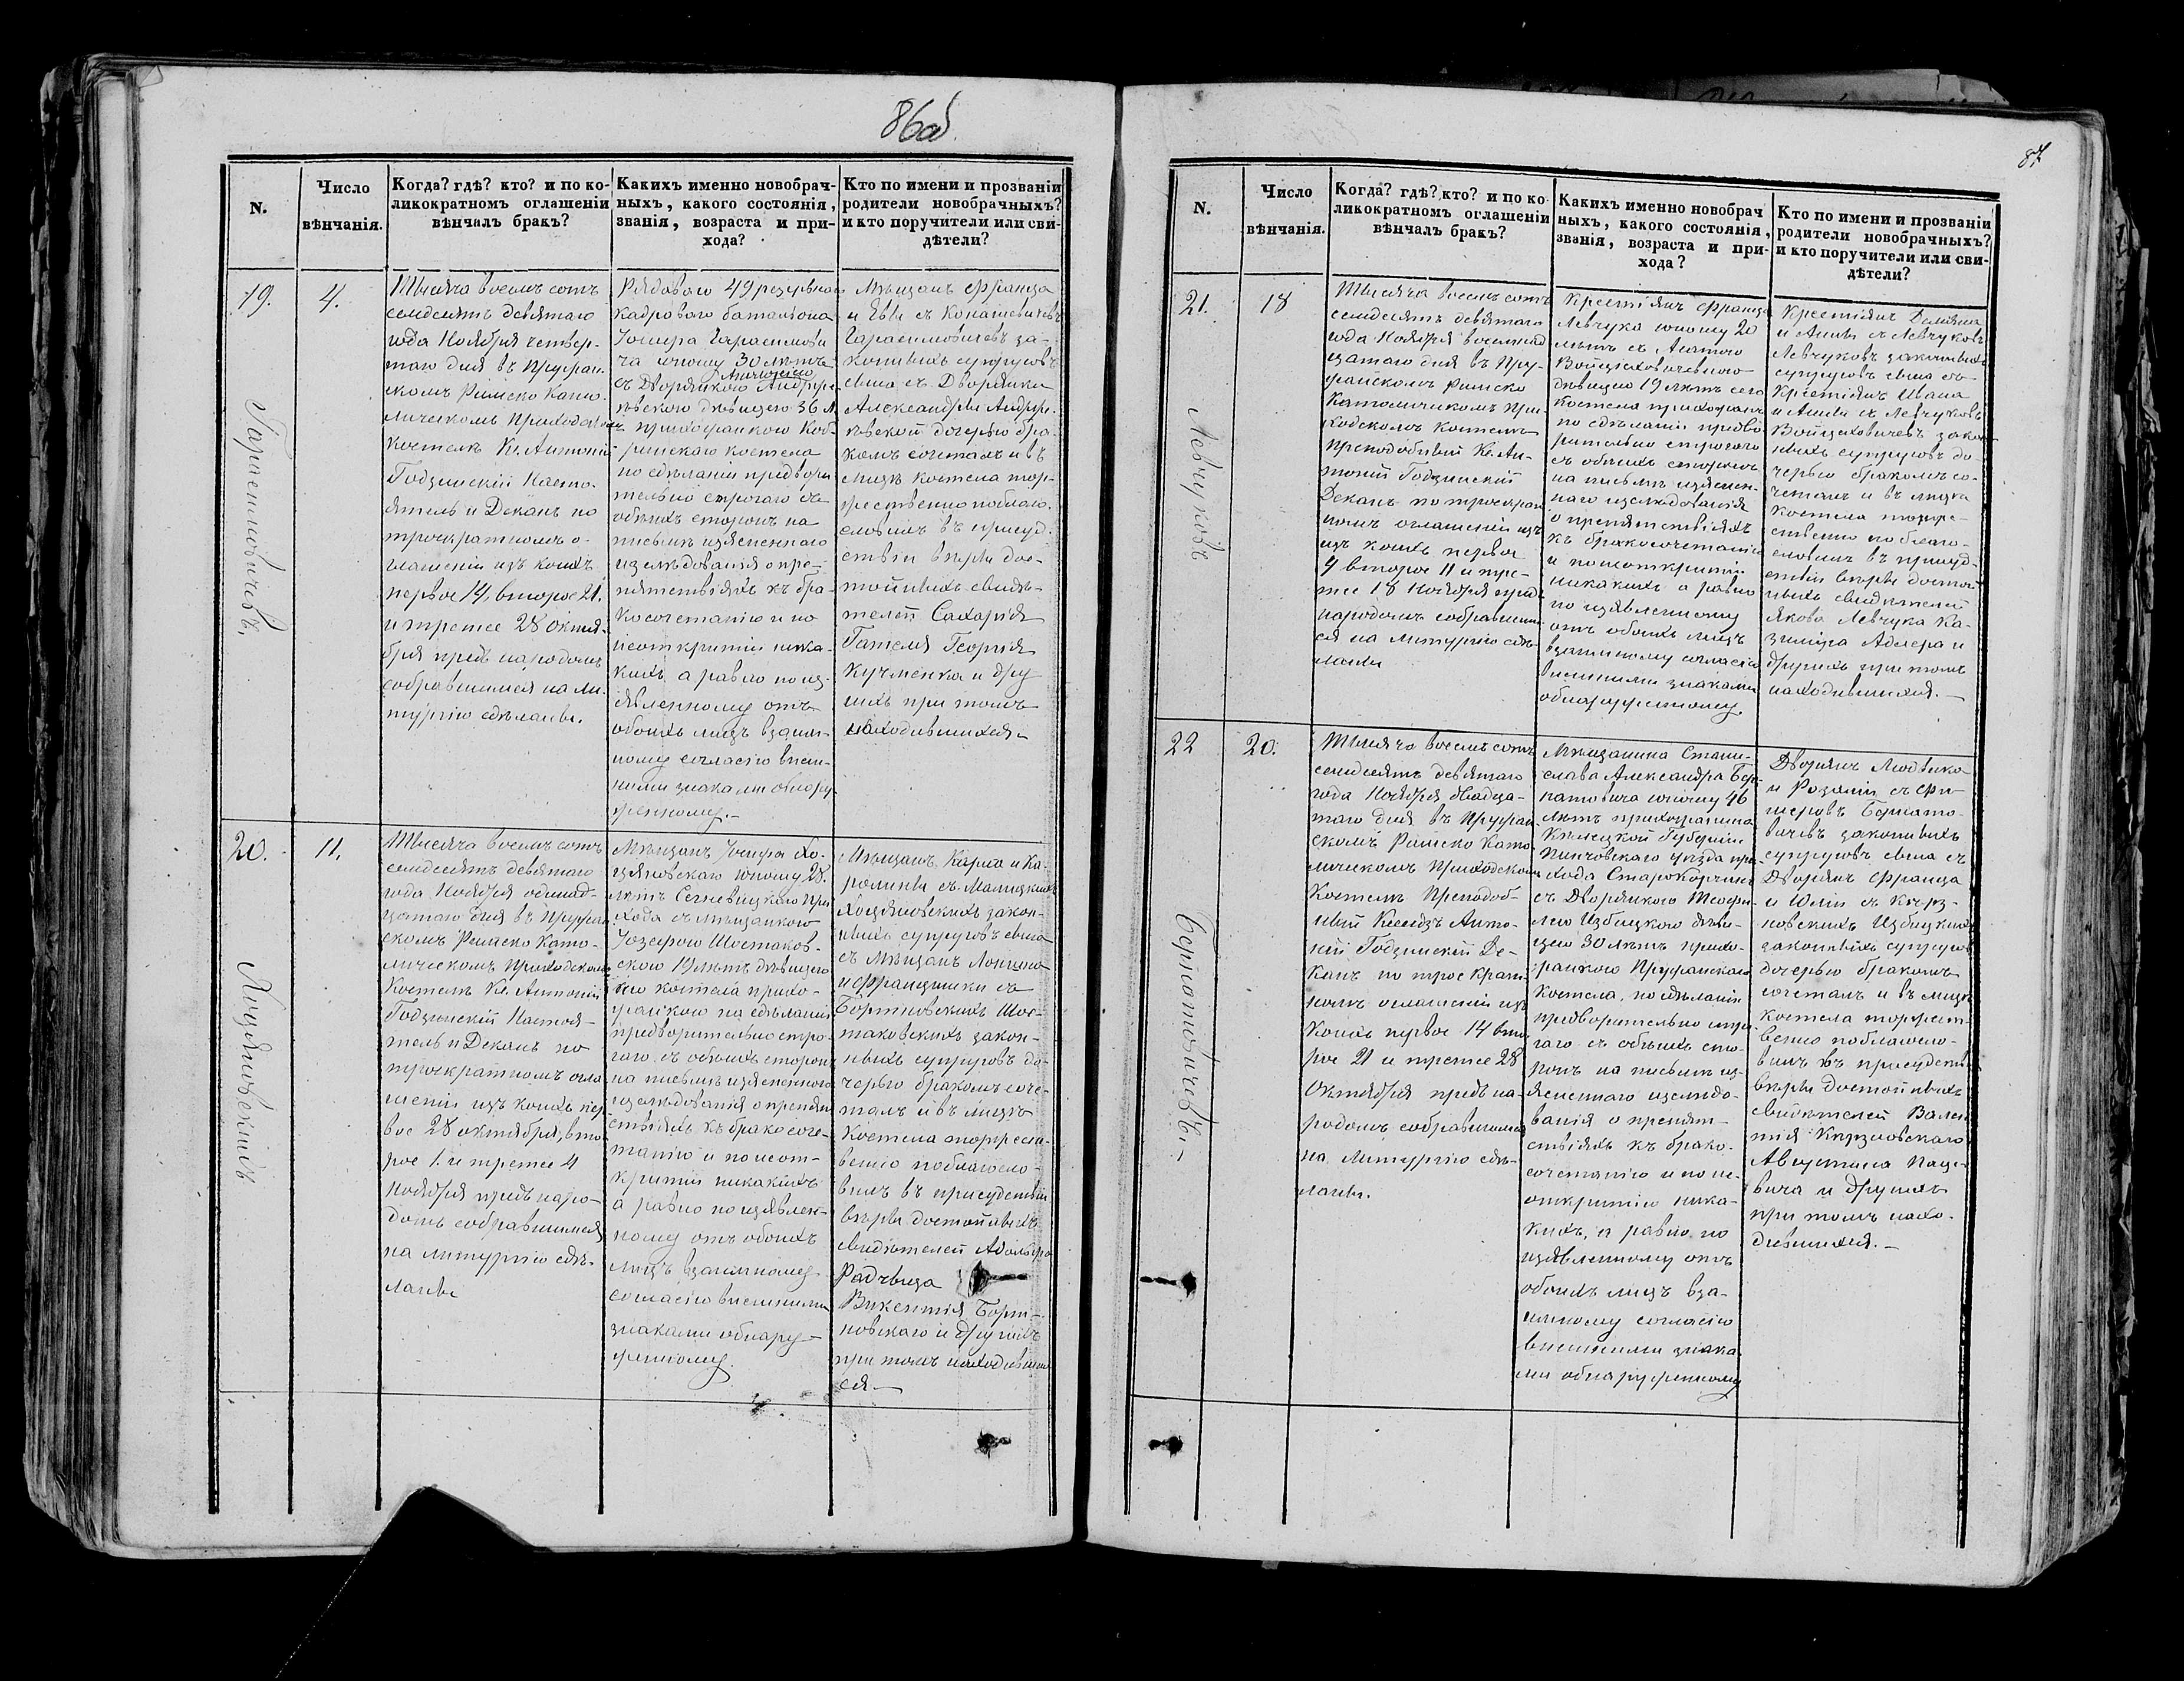 86об.
N.
Число
вѣнчанія.
Когда? гдѣ? кто? и по ко-
ликократномъ оглашеніи
вѣнчалъ бракъ?
Какихъ именно новобрач-
ныхъ, какого состоянія,
званія, возраста и при-
хода?
Кто по имени и прозванію
родители новобрачныхъ?
и кто поручители или сви-
дѣтели?
19.
4.
Гарасимовичевъ.
Тысяча восемъ сотъ
семдесятъ девятаго
года Ноября четвер-
таго дня въ Пружан-
скомъ Римско Като-
лическомъ Приходскомъ
Костелѣ Кс. Антоній
Годзинскій Насто-
ятель и Деканъ по
троекратномъ о-
глашеніи изъ коихъ
первое 14, второе 21.
и третее 28 Октя-
бря предъ народомъ
собравшимся на Ли-
тургію сдѣланы.
Рядоваго 49 резервнаго
кадроваго баталіона
Іосифа Гарасимови-
ча юношу 30 лѣтъ
съ Дворянкою Андрже-
ѣвскою дѣвицею 36 л.
прихожанкою Коб-
ринскаго костела
по сдѣланіи предвори-
тельно строгаго съ
обѣихъ сторонъ на
письмѣ изясненнаго
изслѣдованія о пре-
пятствіяхъ къ бра-
косочетанію и по
неоткритіи ника-
кихъ, а равно по из-
явленному отъ
обоихъ лицъ взаим-
ному согласію внеш-
ними знаками обнару-
женному.-
Мѣщанъ Франца
и Евы съ Конашевичевъ
Гарасимовичевъ за-
конныхъ супруговъ
сына съ Дворянки
Александры Андрже-
ѣвской дочерью бра-
комъ сочеталъ и въ
лицѣ костела тор-
жественно поблаго-
словилъ въ присуд-
ствіи вѣры дос-
тойныхъ свидѣ-
телей Сахарія
Гателя Георгія
Кучменка и дру-
гихъ при томъ
находившихся.-
20.
11.
Хоцяновскихъ
Тысяча восемъ сотъ
семдесятъ девятаго
года Ноября одинад-
цатаго дня въ Пружан-
скомъ Римско Като-
лическомъ Приходскомъ
Костелѣ Кс. Антоній
Годзинскій Настоя-
тель и Деканъ по
троекратномъ огла-
шеніи изъ коихъ пер-
вое 28 октября, вто-
рое 1. и третее 4
Ноября предъ наро-
домъ собравшимся
на литургію сдѣ-
ланы
Мѣщанъ Іосифа Хо-
цяновскаго юношу 28.
лѣтъ Сегневицкаго при-
хода съ мѣщанкою
Іозефою Шостаков-
скою 19 лѣтъ дѣвицею
сего костела прихо-
жанкою по сдѣланіи
предворительно стро-
гаго съ обѣихъ сторонъ
на письмѣ изясненнаго
изслѣдованія о препят-
ствіяхъ къ бракосоче-
танію и по неот-
критіи никакихъ
а равно по изявлен-
ному отъ обоихъ
лицъ взаимному
согласію внешними
знаками обнару-
женному.
Мѣщанъ Карла и Ка-
ролины съ Малицкихъ
Хоцяновскихъ закон-
ныхъ супруговъ сына
съ Мѣщанъ Лонгина
и Францишки съ
Бортновскихъ Шос-
таковскихъ закон-
ныхъ супруговъ до-
черью бракомъ соче-
талъ и въ лицѣ
Костела торжест-
венно поблагосло-
вилъ въ присудствіи
вѣры достойныхъ
свидѣтелей Адольфа
Викентія Борт-
новскаго и другихъ
при томъ находивших-
ся.-
87.
N.
Число
вѣнчанія.
Когда? гдѣ? кто? и по ко-
ликократномъ оглашеніи
вѣнчалъ бракъ?
Какихъ именно новобрач
ныхъ, какого состоянія,
званія, возраста и при-
хода?
Кто по имени и прозванію
родители новобрачныхъ?
и кто поручители или сви-
дѣтели?
21.
18
Левчуковъ
Тысяча восемъ сотъ
семдесятъ девятаго
года Ноября восемнад-
цатаго дня въ Пру-
жанскомъ Римско
Католическомъ При-
ходскомъ костелѣ
Преподобный Кс. Ан-
тоній Годзинскій
Деканъ по троекрат-
номъ оглашеніи изъ
изъ коихъ первое
4 второе 11 и тре-
тее 18 Ноября предъ
народомъ собравшим-
ся на Литургію сдѣ-
ланы
Крестьянъ Франца
Левчука юношу 20
лѣтъ съ Агатою
Войцеховичевною
дѣвицею 19 лѣтъ сего
костела прихожанъ
по сдѣланіи предво-
рительно строгаго
съ обѣихъ сторонъ
на письмѣ изяснен-
наго изслѣдованія
о препятствіяхъ
къ бракосочетанію
и по неоткритіи
никакихъ а равно
по изявленному
отъ обоихъ лицъ
взаимному согласію
внешними знаками
обнаруженному.
Крестьянъ Даміяна
и Анны съ Левчуковъ
Левчуковъ законныхъ
супруговъ сына съ
Крестьянъ Ивана
и Анны съ Левчуковъ
Войцеховичевъ закон-
ныхъ супруговъ до-
черью бракомъ со-
четалъ и въ лицѣ
Костела торже-
ственно поблаго-
словилъ въ присуд-
ствіи вѣры достой-
ныхъ свидѣтелей
Якова Левчука Ка-
зимира Адлера и
другихъ при томъ
находившихся.-
22
20.
Бернатовичевъ.-
Тысяча восемъ сотъ
семдесятъ девятаго
года Ноября двадца-
таго дня въ Пружан-
скомъ Римско Като-
лическомъ Приходскомъ
Костелѣ Преподоб-
ный Ксендзъ Анто-
ній Годзинскій Де-
канъ по троекрат-
номъ оглашеніи изъ
коихъ первое 14 вто-
рое 21 и третее 28
Октября предъ на-
родомъ собравшимся
на Литургію сдѣ-
ланы.
Мѣщанина Стани-
слава Александра Бер-
натовича юношу 46
лѣтъ прихожанина
Кѣлецкой Губерніи
Пинчовскаго уѣзда при-
хода Старокорчина
съ Дворянкою Теофи-
лею Избицкою дѣви-
цею 30 лѣтъ прихо-
жанкою Пружанскаго
костела, по сдѣланіи
предворительно стро-
гаго съ обѣихъ сто-
ронъ на письмѣ из-
ясненнаго изслѣдо-
ванія о препят-
ствіяхъ къ брако-
сочетанію и по не-
откритію ника-
кихъ, а равно по
изявленному отъ
обоихъ лицъ вза-
имному согласію
внешними знака-
ми обнаруженному
Дворянъ Людвика
и Розаліи съ Фи-
шеровъ Бернато-
вичевъ законныхъ
супруговъ сына съ
Дворянъ Франца
и Юліи съ Кѣрз-
новскихъ Избицкихъ
законныхъ супруговъ
дочерью бракомъ
сочеталъ и въ лицѣ
костела торжест-
венно поблагосло-
вилъ въ присудствіи
вѣры достойныхъ
свидѣтелей Вален-
тія Кѣрзновскаго
Августина Паце-
вича и другихъ
при томъ нахо-
дившихся.-